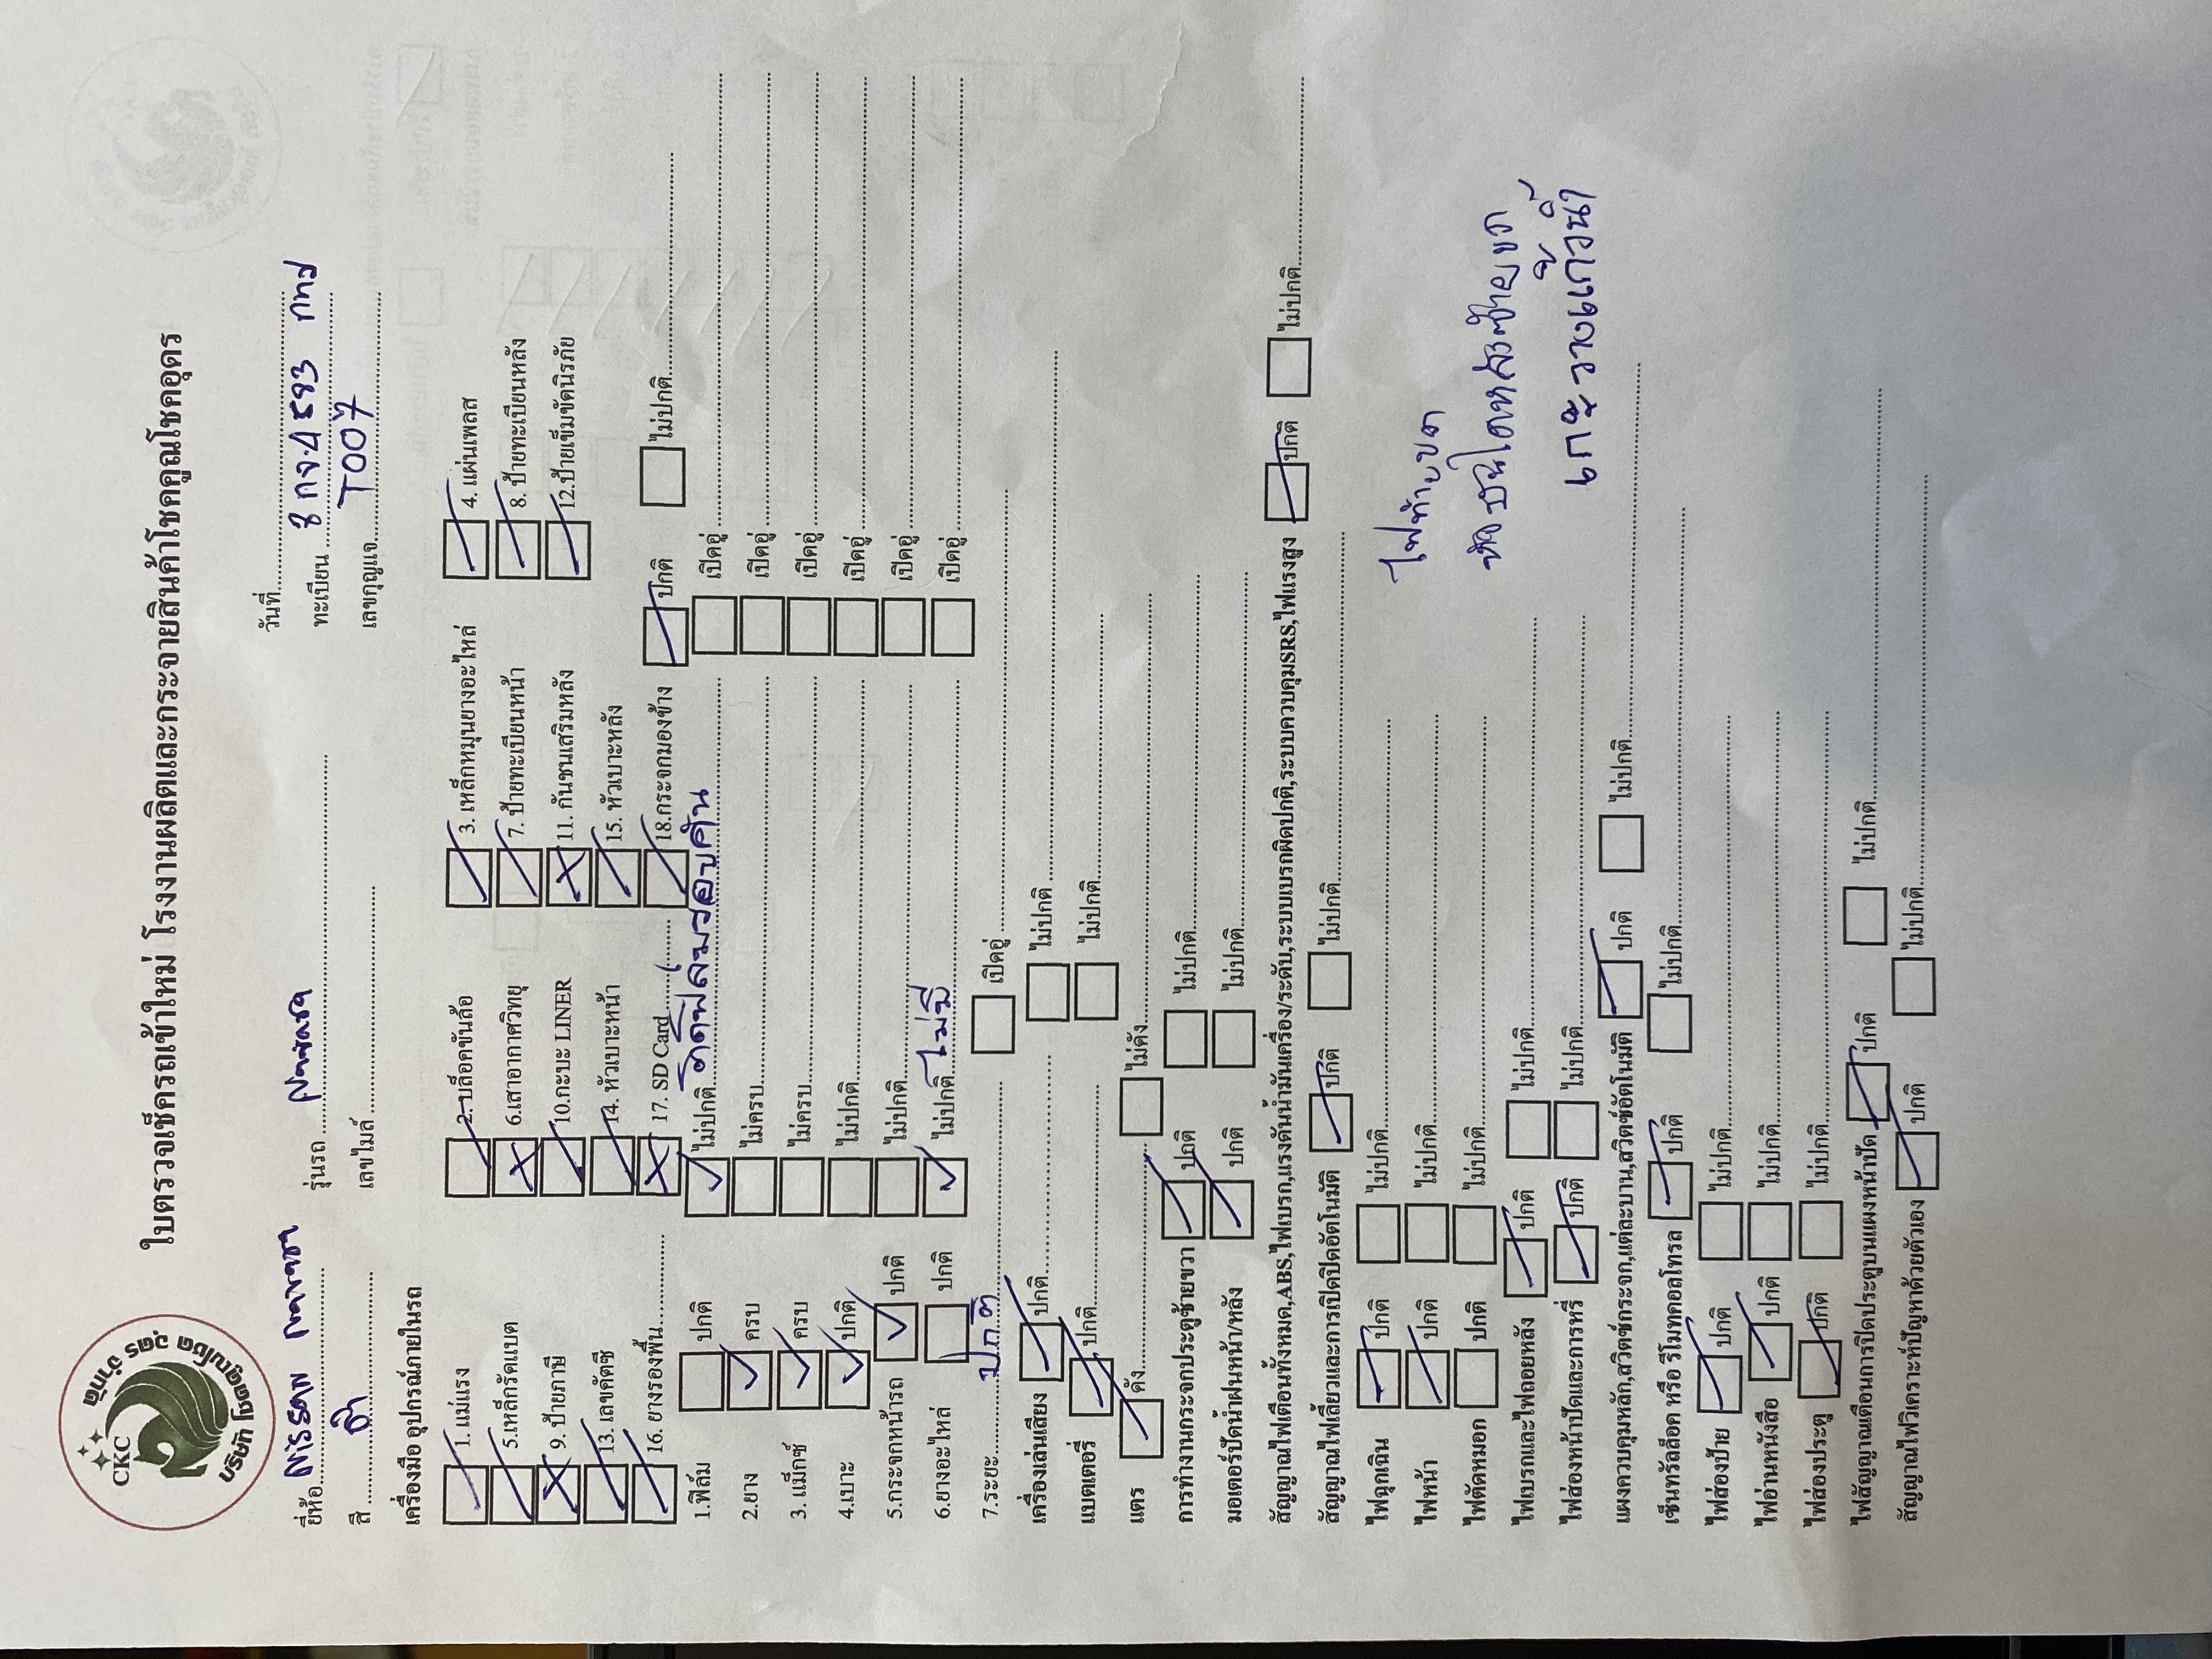 CKC
บริษัท โชคคูณโชค อุดร จำกัด
ใบตรวจเช็ครถเข้าใหม่ โรงงานผลิตและกระจายสินค้าโชคคูณโชคอุดร
วันที่
ยี่ห้อ Nissan Navara รุ่นรถ Navara ทะเบียน 4593 กทม
สี ดำ เลขไมล์ เลขกุญแจ T007
เครื่องมือ อุปกรณ์ภายในรถ
1. แม่แรง 2. บล็อคขันล้อ 3. เหล็กหมุนยางอะไหล่ 4. แผ่นเพลส
5.เหล็กกรัดแบต 6.เสาอากาศวิทยุ 7. ป้ายทะเบียนหน้า 8. ป้ายทะเบียนหลัง
9. ป้ายภาษี 10.กะบะ LINER 11. กันชนเสริมหลัง 12.ป้ายเข็มขัดนิรภัย
13. เลขคัดซี 14. หัวเบาะหน้า 15. หัวเบาะหลัง
16. ยางรองพื้น 17. SD Card 18.กระจกมองข้าง ปกติ ไม่ปกติ
1.ฟิล์ม ปกติ ไม่ปกติ ติดฟิล์มรอบคัน เปิดอู่
2.ยาง ครบ ไม่ครบ เปิดอู่
3. แม็กซ์ ครบ ไม่ครบ เปิดอู่
4.เบาะ ปกติ ไม่ปกติ เปิดอู่
5.กระจกหน้ารถ ปกติ ไม่ปกติ เปิดอู่
6.ยางอะไหล่ ปกติ ไม่ปกติ ไม่มี เปิดอู่
7.ระยะ ปกติ เปิดอู่
เครื่องเล่นเสียง ปกติ ไม่ปกติ
แบตเตอรี่ ปกติ ไม่ปกติ
แตร ดัง ไม่ดัง
การทำงานกระจกประตูซ้ายขวา ปกติ ไม่ปกติ
มอเตอร์ปัดน้ำฝนหน้า/หลัง ปกติ ไม่ปกติ
สัญญาณไฟเตือนทั้งหมด,ABS,ไฟเบรก,แรงดันน้ำมันเครื่อง/ระดับ,ระบบเบรกผิดปกติ,ระบบควบคุมSRS,ไฟแรงสูง ปกติ ไม่ปกติ
สัญญาณไฟเลี้ยวและการเปิดปิดอัตโนมัติ ปกติ ไม่ปกติ
ไฟฉุกเฉิน ปกติ ไม่ปกติ
ไฟหน้า ปกติ ไม่ปกติ
ไฟตัดหมอก ปกติ ไม่ปกติ
ไฟเบรกและไฟถอยหลัง ปกติ ไม่ปกติ
ไฟส่องหน้าปัดและการหรี่ ปกติ ไม่ปกติ
แผงควบคุมหลัก,สวิตช์กระจก,แต่ละบาน,สวิตช์อัตโนมัติ ปกติ ไม่ปกติ
เซ็นทรัลล็อค หรือ รีโมทคอลโทรล ปกติ ไม่ปกติ
ไฟส่องป้าย ปกติ ไม่ปกติ
ไฟอ่านหนังสือ ปกติ ไม่ปกติ
ไฟส่องประตู ปกติ ไม่ปกติ
ไฟสัญญาณเตือนการปิดประตูบนแผงหน้าปัด ปกติ ไม่ปกติ
สัญญาณไฟวิเคราะห์ปัญหาด้วยตัวเอง ปกติ ไม่ปกติ